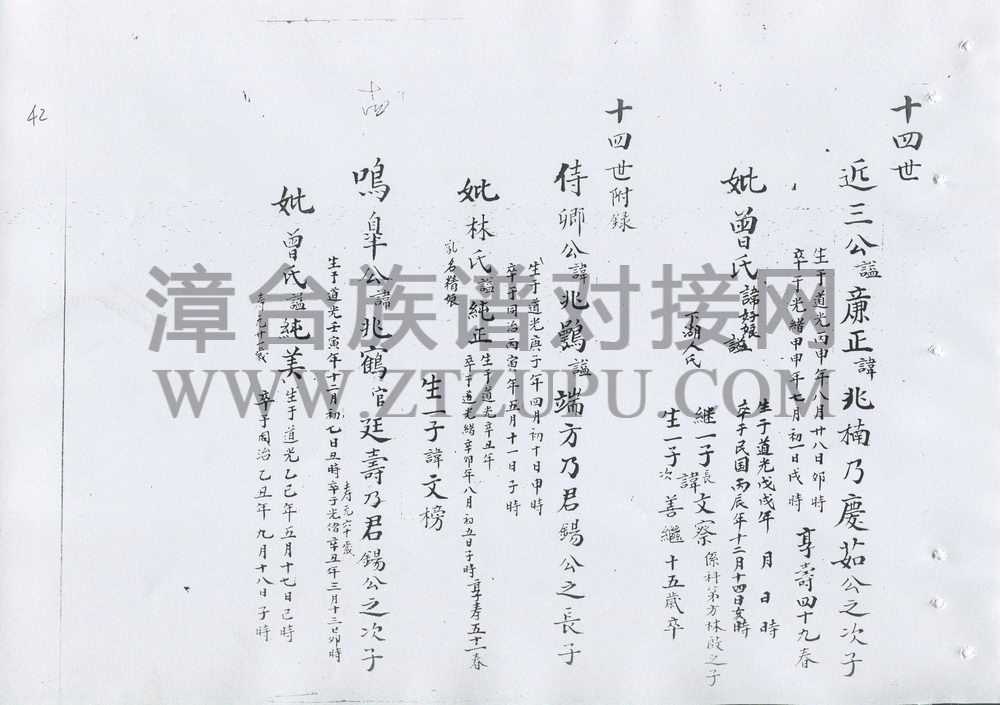 十四世
近三公謚亷正諱兆楠乃慶茹公之次子
生于道光四甲申年八月廿八日卯時
卒于光緒甲申年七月初一日戌時
享壽四十九春
妣曾氏諱好娘謚
下湖人氏
生于道光戊戌年 月 日 時
卒于民国丙辰年十二月十四日亥時
継一子長諱文察係科第方林殷之子
生一子次善繼十五歲卒
十四世附錄
侍卿公諱兆鸚謚端方乃君錫公之長子
生于道光庚子年四月初十日申時
卒于同治丙寅年五月十一日子時
妣林氏謚純正
乳名精娘
生于道光辛丑年
卒于道光緒辛卯年八月初五日子時享寿五十一春
生一子諱文榜
鳴皐公諱兆鶴官廷壽乃君錫公之次子
生于道光壬寅年十二月初七日丑時卒于光緒辛丑年三月十三日卯時
寿元六十歲
妣曾氏謚純美
生于道光乙巳年五月十七日已時
卒于同治乙丑年九月十八日子時
寿元廿一歲
42
漳台族谱对接网
WWW.ZTZUPU.COM